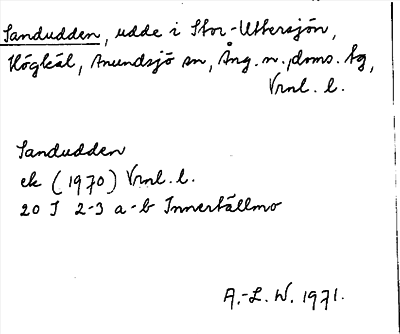 Sandudden, udde i Stor-Uttersjön,
Högkäl, Anundsjö sn, Ång. n., doms. tg,
Vrnl. l.
Sandudden
ek (1970) Vrnl. l.
20 J 2-3 a-b Innertällmo
A.-L. W. 1971.